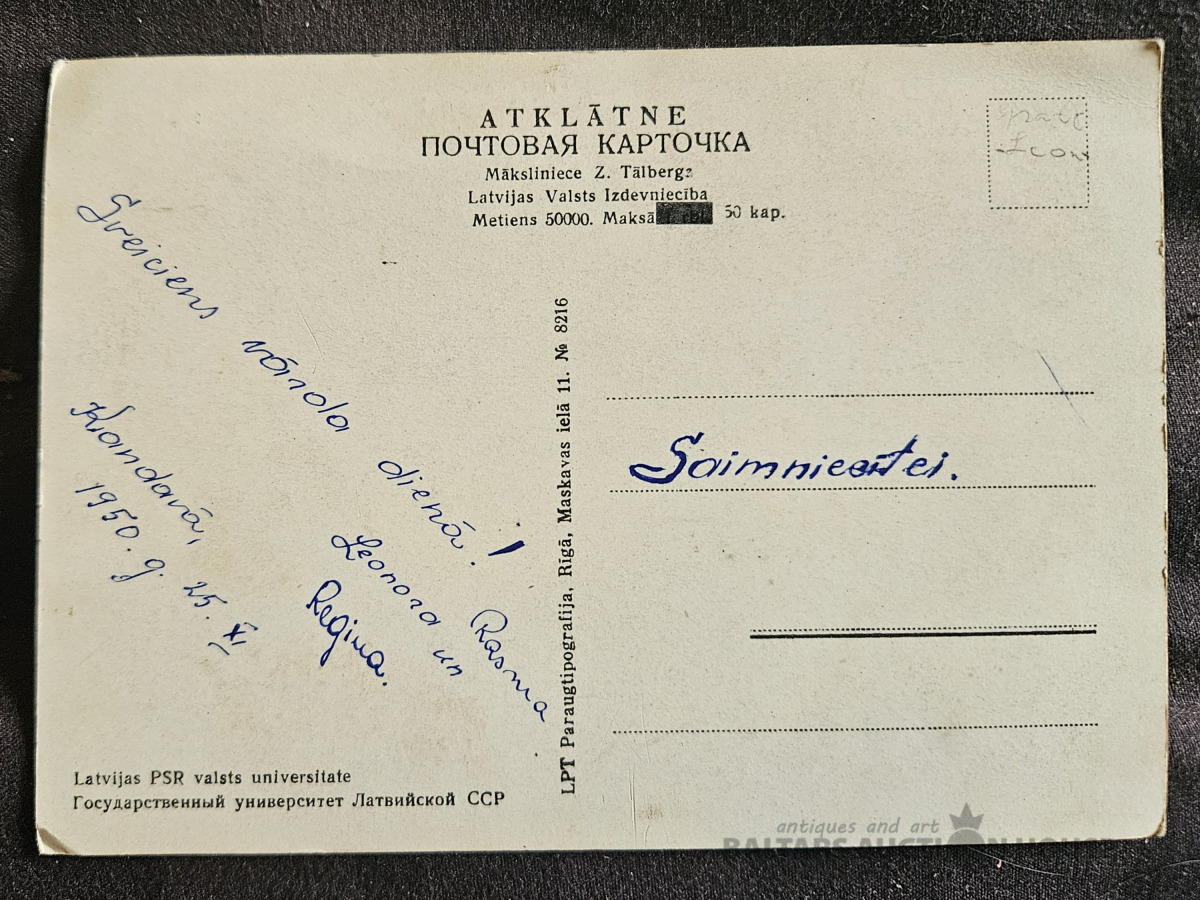 ATKLĀTNE
ПОЧТОВАЯ КАРТОЧКА
Māksliniece Z. Tālberga
Latvijas Valsts Izdevniecība
Metiens 50000. Maksā 50 kap.
Sveiciens
vārda
dienā!
Kandavā,
1950. g. 25. XI
Rasma
Leonora un
Regina.
LPT Paraugtipografija, Rīgā, Maskavas ielā 11. № 8216
Saimniecītei.
Latvijas PSR valsts universitate
Государственный университет Латвийской ССР
antiques and art
BALTARS AUCTION HOUSE